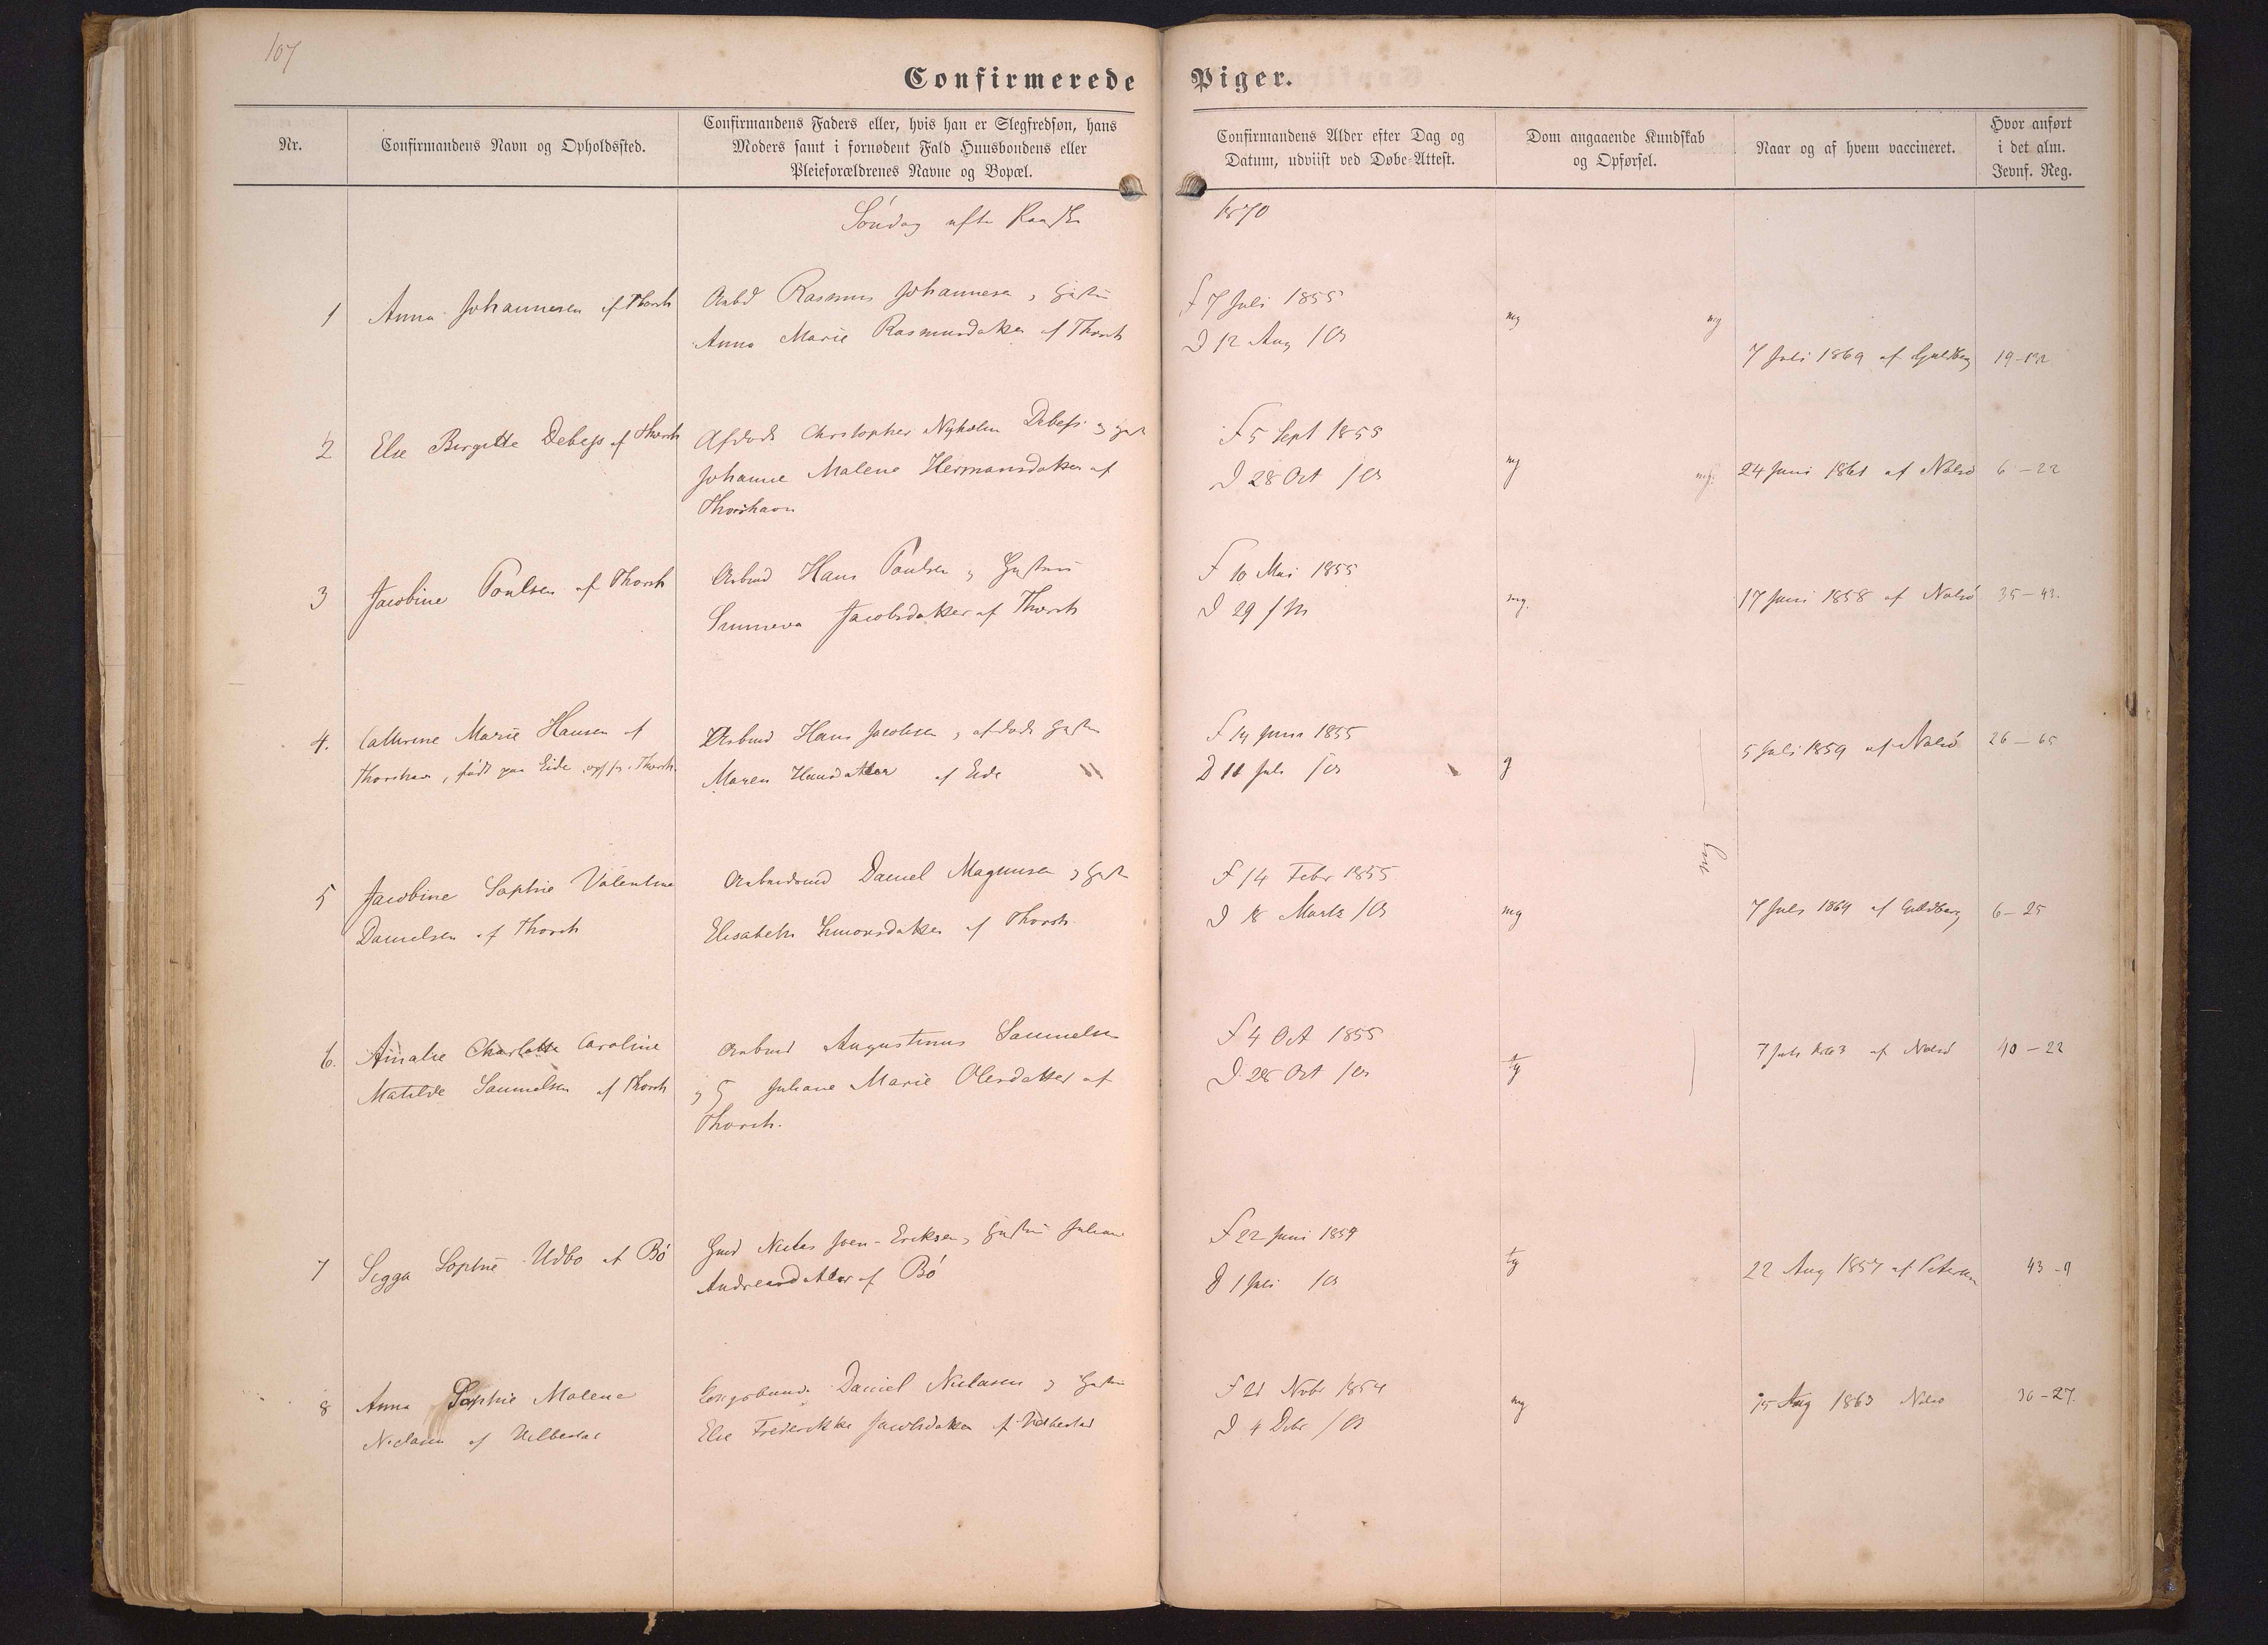 107
Confirmerede Piger.
Nr.
Confirmandens Navn og Opholdssted.
Confirmandens Faders eller, hvis han er Slegfredsøn, hans
Moders samt i fornødent Fald Huusbondens eller
Pleieforældrenes Navne og Bopæl.
Confirmandens Alder efter Dag og
Datum, udviist ved Døbe-Attest.
Dom angaaende Kundskab
og Opførsel.
Naar og af hvem vaccineret.
Hvor anført
i det alm.
Jevnf. Reg.
Søndag efter Paaske 1870
1
Anna Johannesen af Thorsh
Arbd Rasmus Johannesen og Hustru
Anna Marie Rasmusdatter af Thorsh
F 7 Juli 1855
D 12 Aug
mg
mg
7 Juli 1869 af Guldberg
19-132
2
Else Birgitte Debess af Thorsh
Afdøde Christopher Nyholm Debess og
Johanne Malene Hermansdatter af
Thorshavn
F 5 Sept 1855
D 28 Oct
mg
mg.
24 Juni 1861 af Nolsø
6-22
3
Jacobine Poulsen af Thorsh
Arbmd Hans Poulsen og Hustru
Sunneva Jacobsdatter af Thorsh
F 10 Mai 1855
D 29
mg.
17 Juni 1858 af Nolsø
35-43.
4.
Cathrine Marie Hansen af
Thorshavn, født paa Eide, Thorsh.
Arbmd Hans Jacobsen og afdøde Hustru
Maren Hansdatter af Eide
F 14 Juni 1855
D 11 Juli
g
5 Juli 1859 af Nolsø
26-65
5
Jacobine Sophie Valentine
Danielsen af Thorsh
Arbeidsmd Daniel Magnusen og Hust
Elisabeth Simonsdatter af Thorsh.
F 14 Febr 1855
D 18 Marts
mg
mg
7 Juli 1869 af Guldberg
6-25
6.
Amalie Charlotte Caroline
Matilde Samuelsen af Thorsh
Arbmd Augustinus Samuelsen
og H Juliane Marie Olesdatter af
Thorsh.
F 4 Oct 1855
D 28 Oct
tg
7 Juli 1863 af Nolsø
40-22
7
Sigga Sophie Udbo af Bø
Gmd Niclas Joen-Eriksen og Hustru Juliane
Andreasdatter af Bø
F 22 Juni 1854
D 1 Juli
tg
22 Aug 1857 af Petersen
43-9
8
Anna Sophie Malene
Niclasen af Velbestad
Kongsbonde Daniel Niclasen og Hustru
Else Frederikke Jacobsdatter af Velbestad
F 21 Novbr 1854
D 4 Debr
mg
15 Aug 1863 Nolsø
36-27.